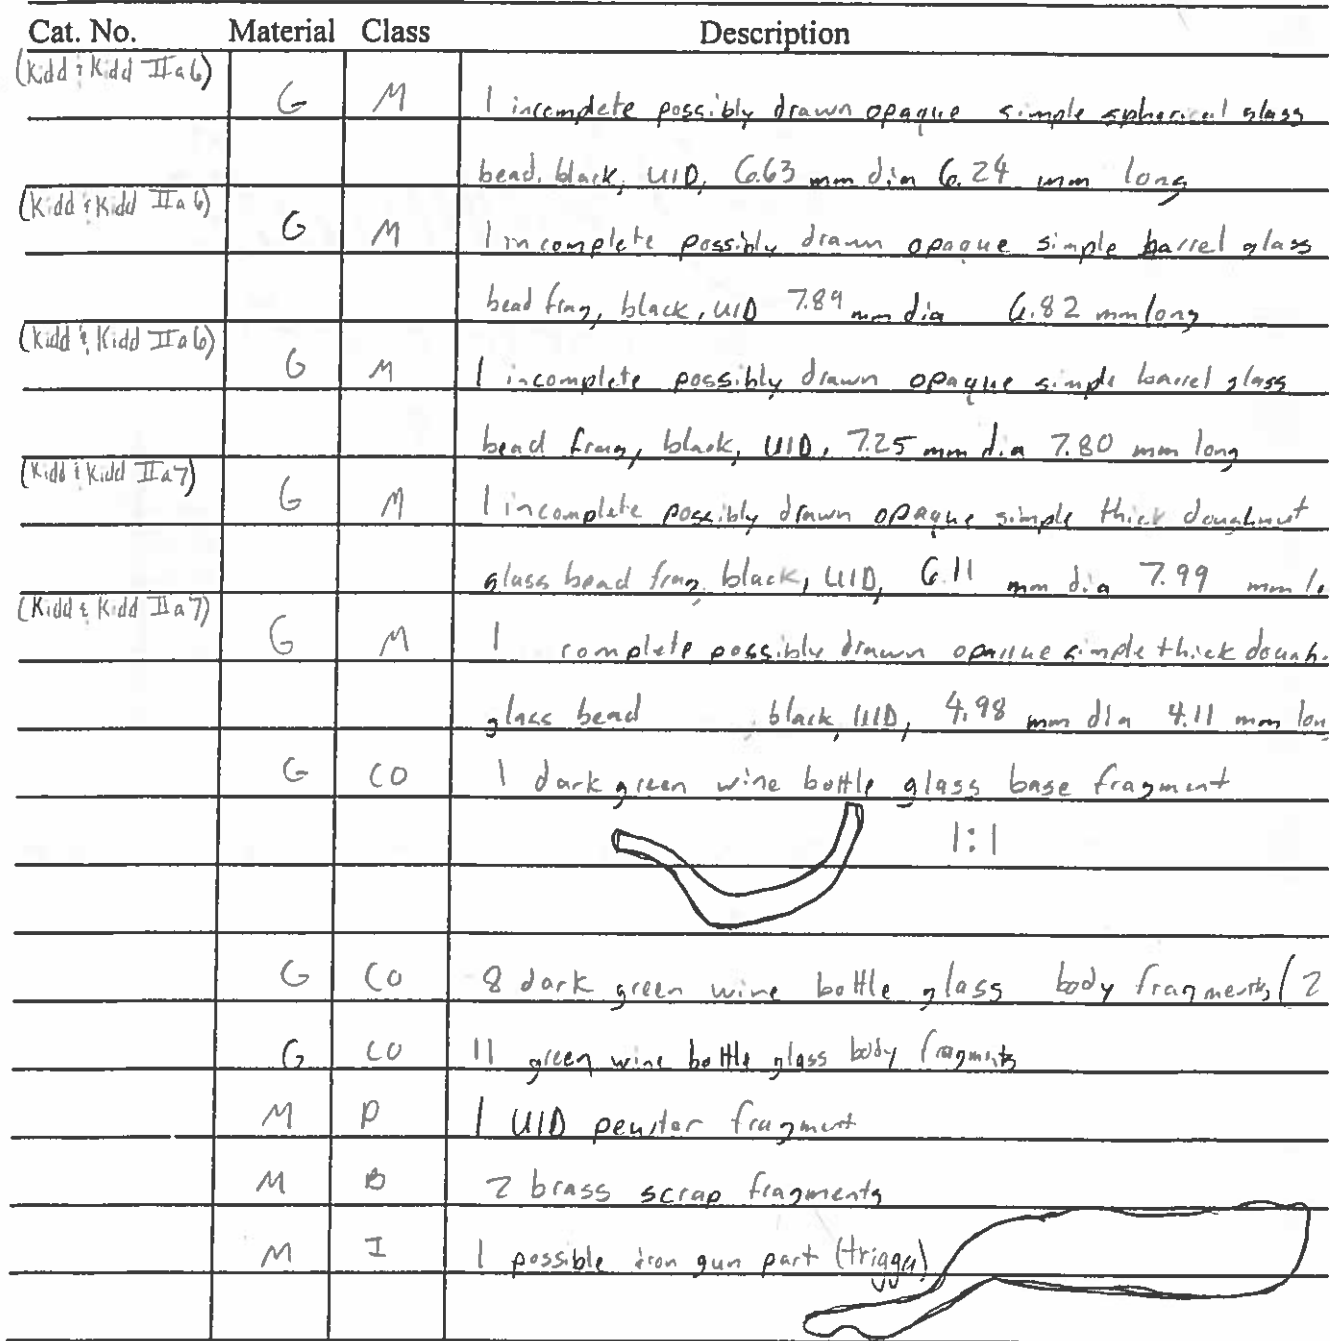 Cat. No. Material Class Description
(Kidd & Kidd IIa6) G M 1 incomplete possibly drawn opaque simple spherical glass
bead, black, UID, 6.63 mm dia 6.24 mm long
(Kidd & Kidd IIa6) G M 1 incomplete possibly drawn opaque simple barrel glass
bead frag, black, UID 7.89 mm dia 6.82 mm long
(Kidd & Kidd IIa6) G M 1 incomplete possibly drawn opaque simple barrel glass
bead frag, black, UID, 7.25 mm dia 7.80 mm long
(Kidd & Kidd IIa7) G M 1 incomplete possibly drawn opaque simple thick doughnut
glass bead frag, black, UID, 6.11 mm dia 7.99 mm lo
(Kidd & Kidd IIa7) G M 1 complete possibly drawn opaque simple thick dough
glass bead, black, UID, 4.98 mm dia 4.11 mm lon
G CO 1 dark green wine bottle glass base fragment
1:1
G CO 8 dark green wine bottle glass body fragments (2
G CO 11 green wine bottle glass body fragments
M P 1 UID pewter fragment
M B 2 brass scrap fragments
M I 1 possible iron gun part (trigga)